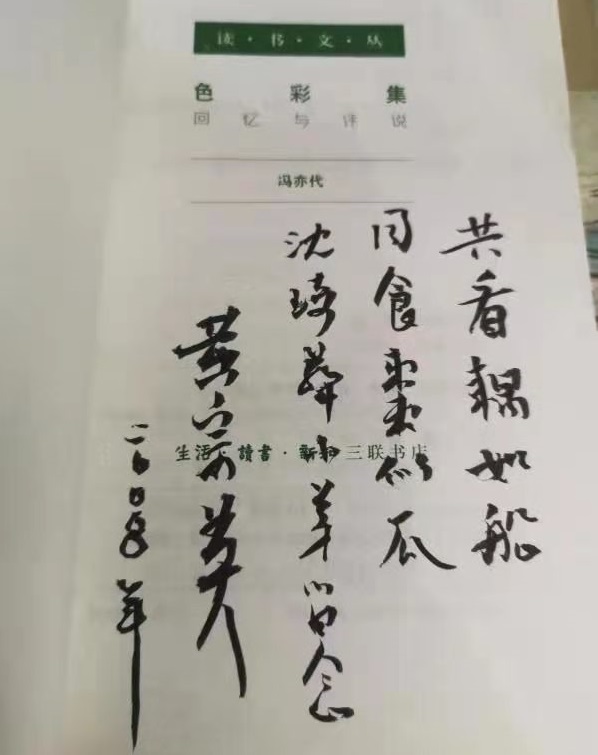 读·书·文·丛
色彩集
回忆与评说
冯亦代
生活·讀書·新知三联书店
共看耦如船
同食棗似瓜
沈琦華小弟留念
黄宗英
二〇〇年